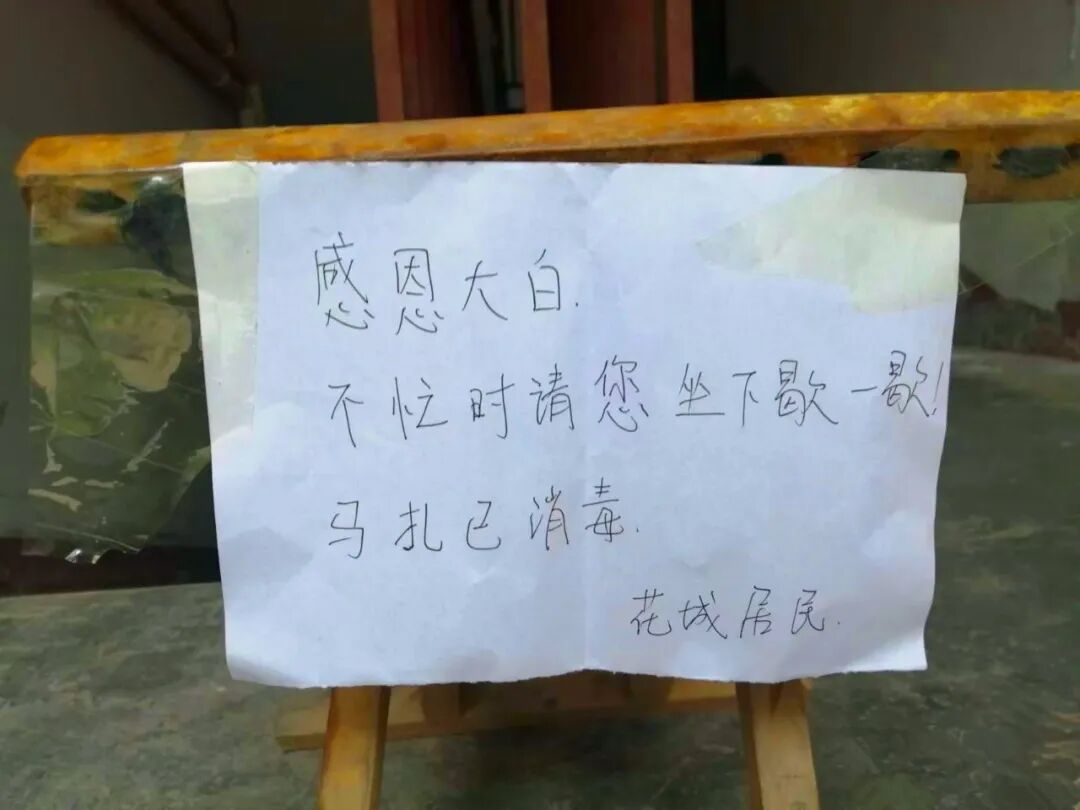 感恩大白.
不忙时请您坐下歇一歇!
马扎已消毒.
花城居民.